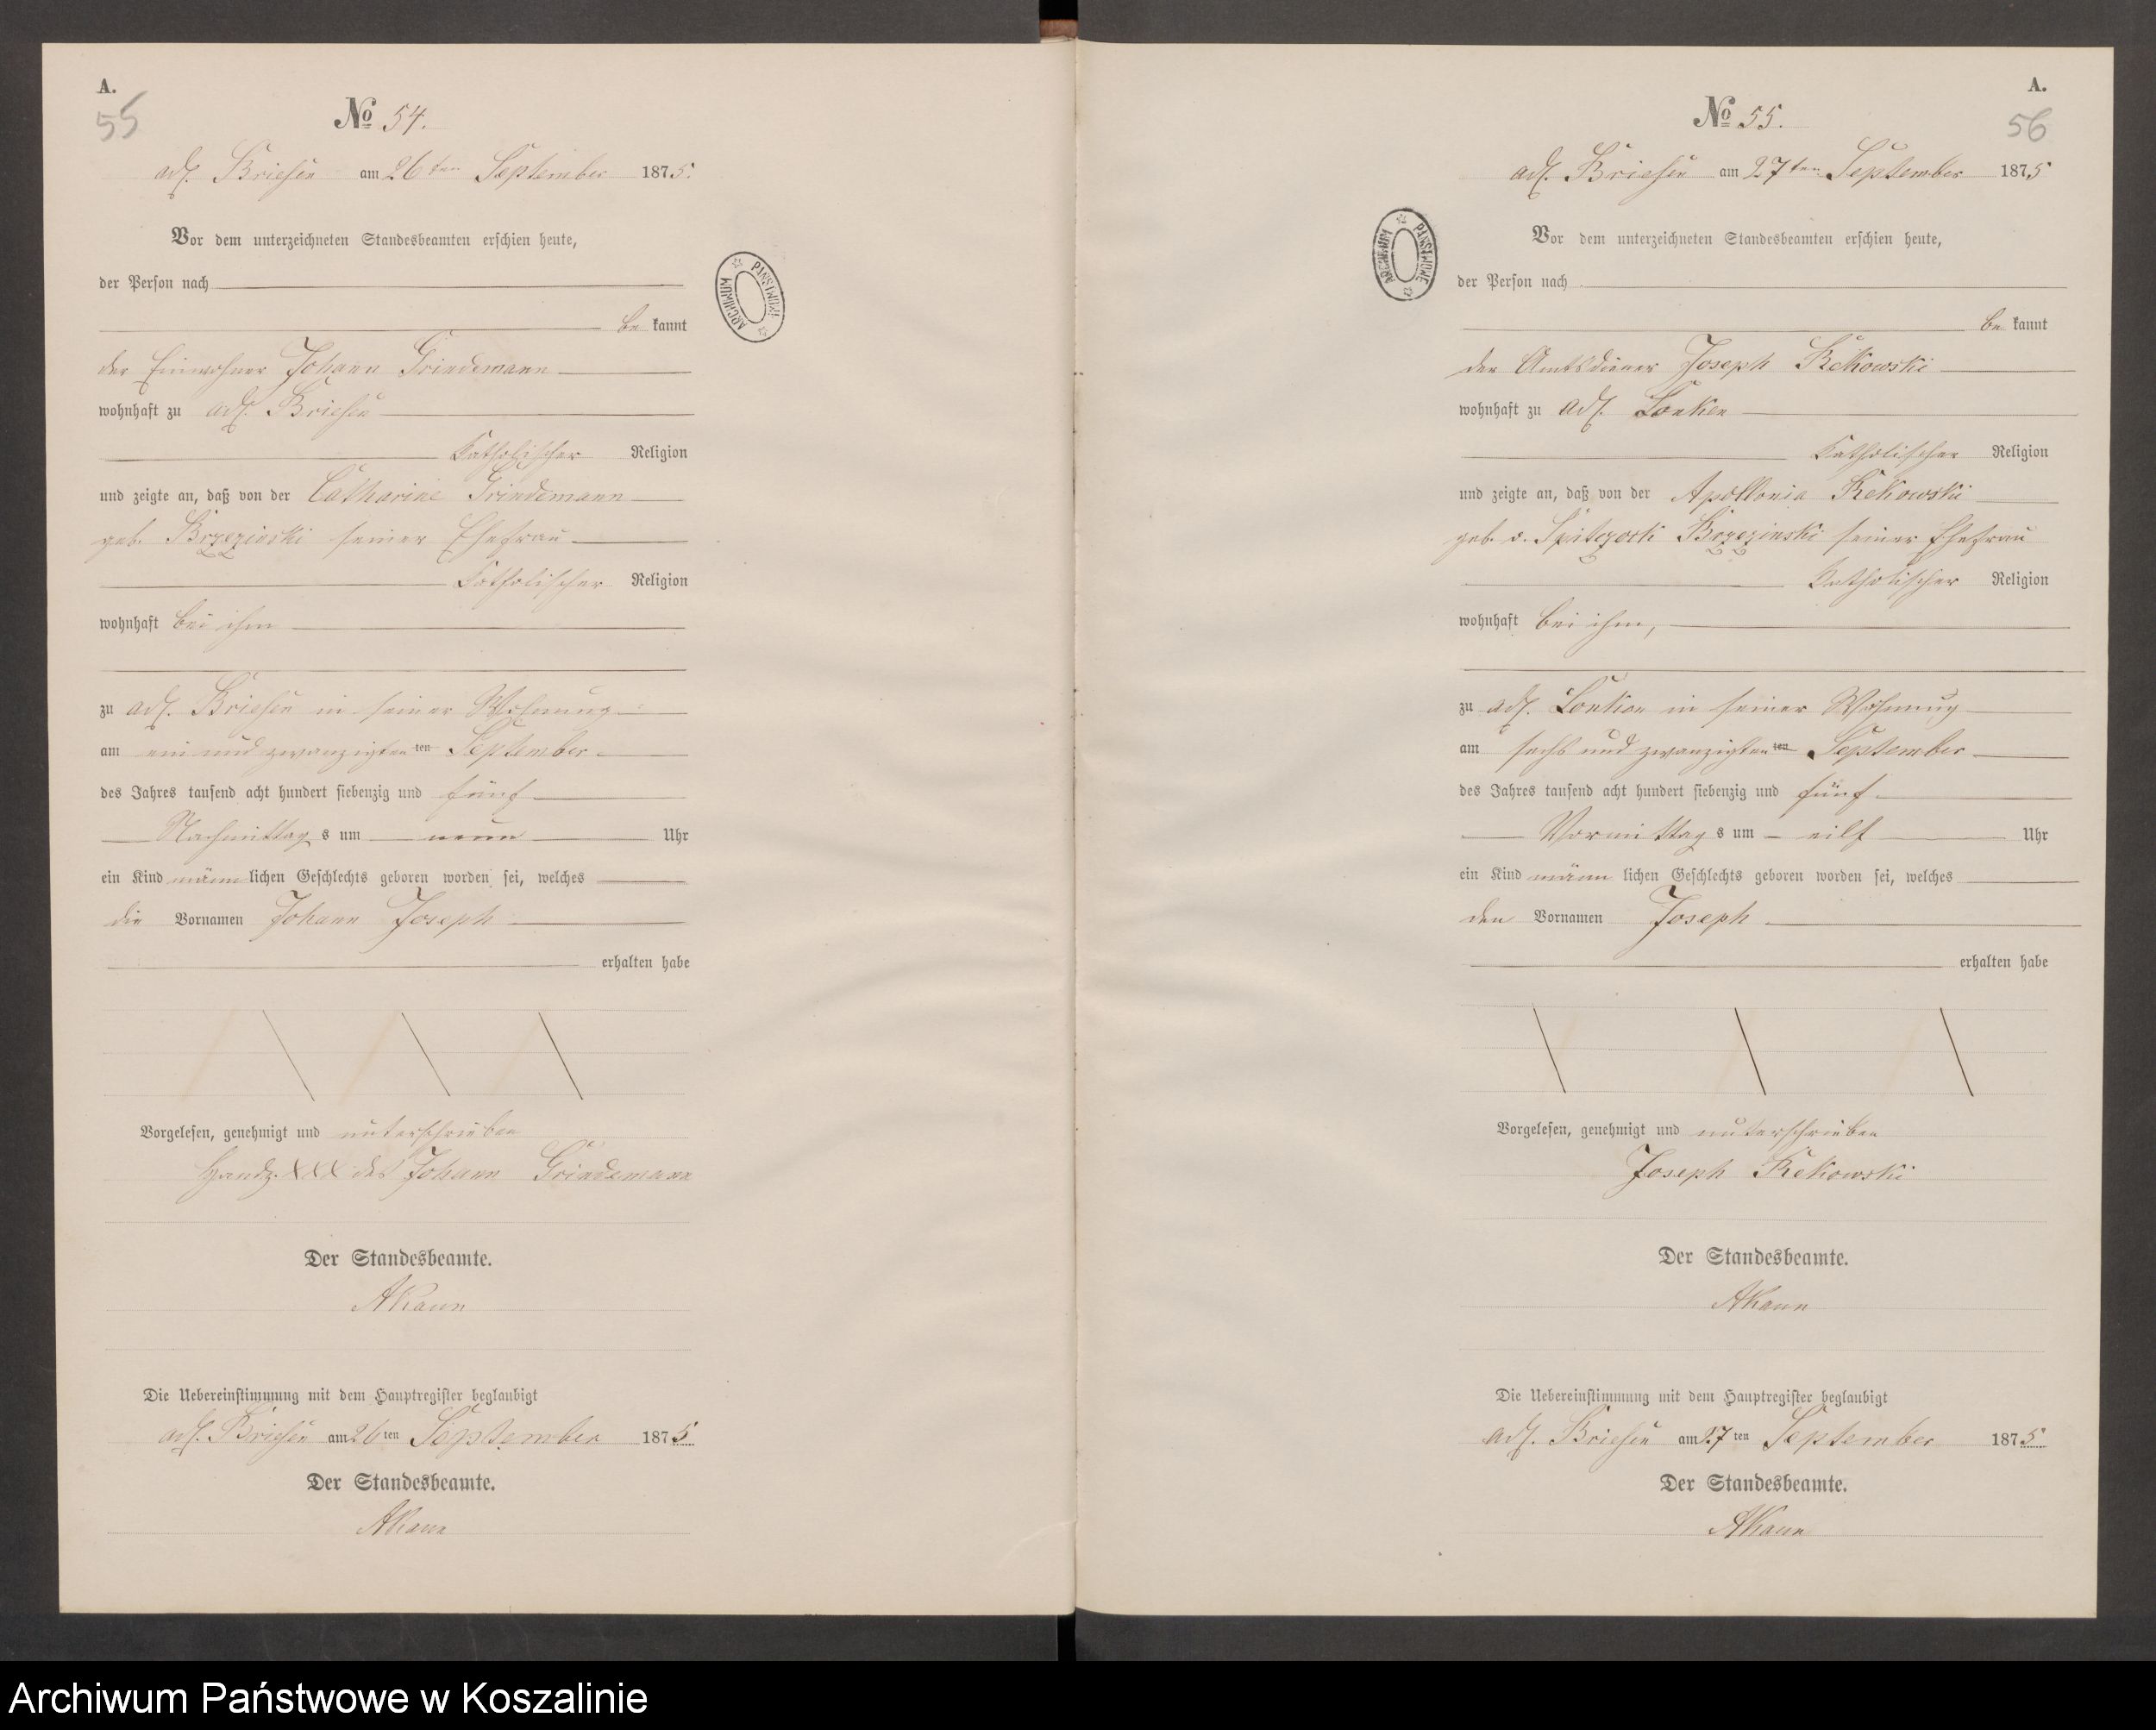 A.
55
No 54.
adl. Briesen am 26ten September 1875.
Vor dem unterzeichneten Standesbeamten erschien heute,
der Person nach
be kannt
der Einwohner Johann Grindemann
wohnhaft zu adl. Briesen
Katholischer Religion
und zeigte an, daß von der Catharine Grindemann
geb. Brzezinski seiner Ehefrau
Katholischer Religion
wohnhaft bei ihm
zu adl. Briesen in seiner Wohnung
am ein und zwanzigten ten September
des Jahres tausend acht hundert siebenzig und fünf
Nachmittag s um neun Uhr
ein Kind männ lichen Geschlechts geboren worden sei, welches
die Vornamen Johann Joseph
erhalten habe
Vorgelesen, genehmigt und unterschrieben
Handz. XXX des Johann Grindemann
Der Standesbeamte.
AKann
Die Uebereinstimmung mit dem Hauptregister beglaubigt
adl. Briesen am 26 ten September 1875
Der Standesbeamte.
AKann
ARCHIWUM PAŃSTWOWE
A.
56
No 55.
adl. Briesen am 27ten September 1875
Vor dem unterzeichneten Standesbeamten erschien heute,
der Person nach
be kannt
der Amtsdiener Joseph Rekowski
wohnhaft zu adl. Lonken
Katholischer Religion
und zeigte an, daß von der Apollonia Rekowski
geb. v. Spiczock Brzezinski seiner Ehefrau
Katholischer Religion
wohnhaft bei ihm,
zu adl. Lonken in seiner Wohnung
am sechs und zwanzigten ten September
des Jahres tausend acht hundert siebenzig und fünf
Vormittag s um eilf Uhr
ein Kind männ lichen Geschlechts geboren worden sei, welches
den Vornamen Joseph
erhalten habe
Vorgelesen, genehmigt und unterschrieben
Joseph Rekowski
Der Standesbeamte.
AKann
Die Uebereinstimmung mit dem Hauptregister beglaubigt
adl. Briesen am 27 ten September 1875
Der Standesbeamte.
AKann
ARCHIWUM PAŃSTWOWE
Archiwum Państwowe w Koszalinie